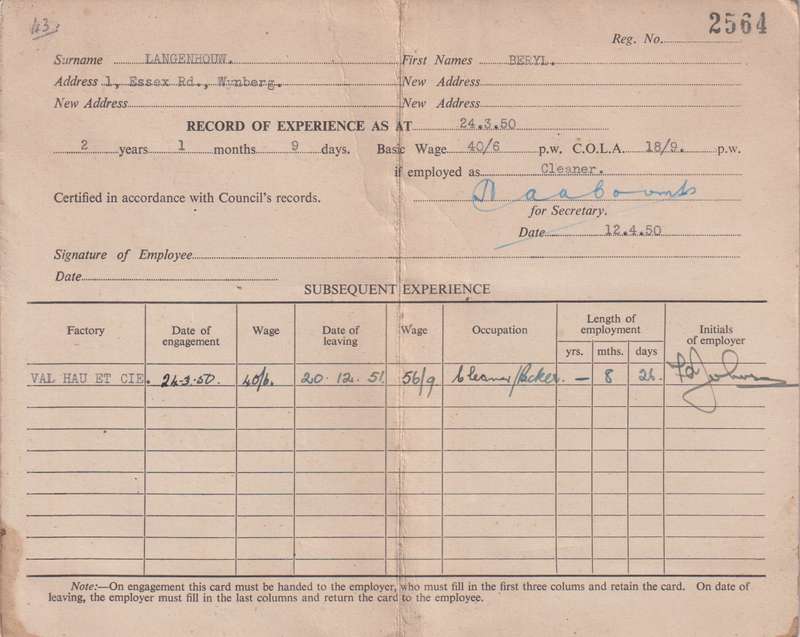 43.
Reg. No. 2564
Surname LANGENHOUW. First Names BERYL.
Address 1, Essex Rd., Wynberg. New Address
New Address New Address
RECORD OF EXPERIENCE AS AT 24.3.50
2 years 1 months 9 days. Basic Wage 40/6 p.w. C.O.L.A. 18/9. p.w.
if employed as Cleaner.
Certified in accordance with Council's records.
for Secretary.
Date 12.4.50
Signature of Employee
Date
SUBSEQUENT EXPERIENCE
Factory Date of engagement Wage Date of leaving Wage Occupation Length of employment yrs. mths. days Initials of employer
VAL HAU ET CIE. 24.3.50. 40/6. 20.12.51 56/9 Cleaner/Packer. — 8 26.
Note:—On engagement this card must be handed to the employer, who must fill in the first three colums and retain the card. On date of
leaving, the employer must fill in the last columns and return the card to the employee.